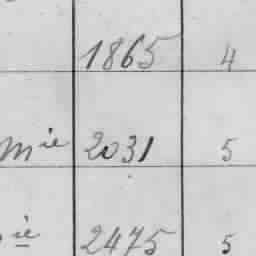 1865 4
mie 2031 5
ie 2475 5